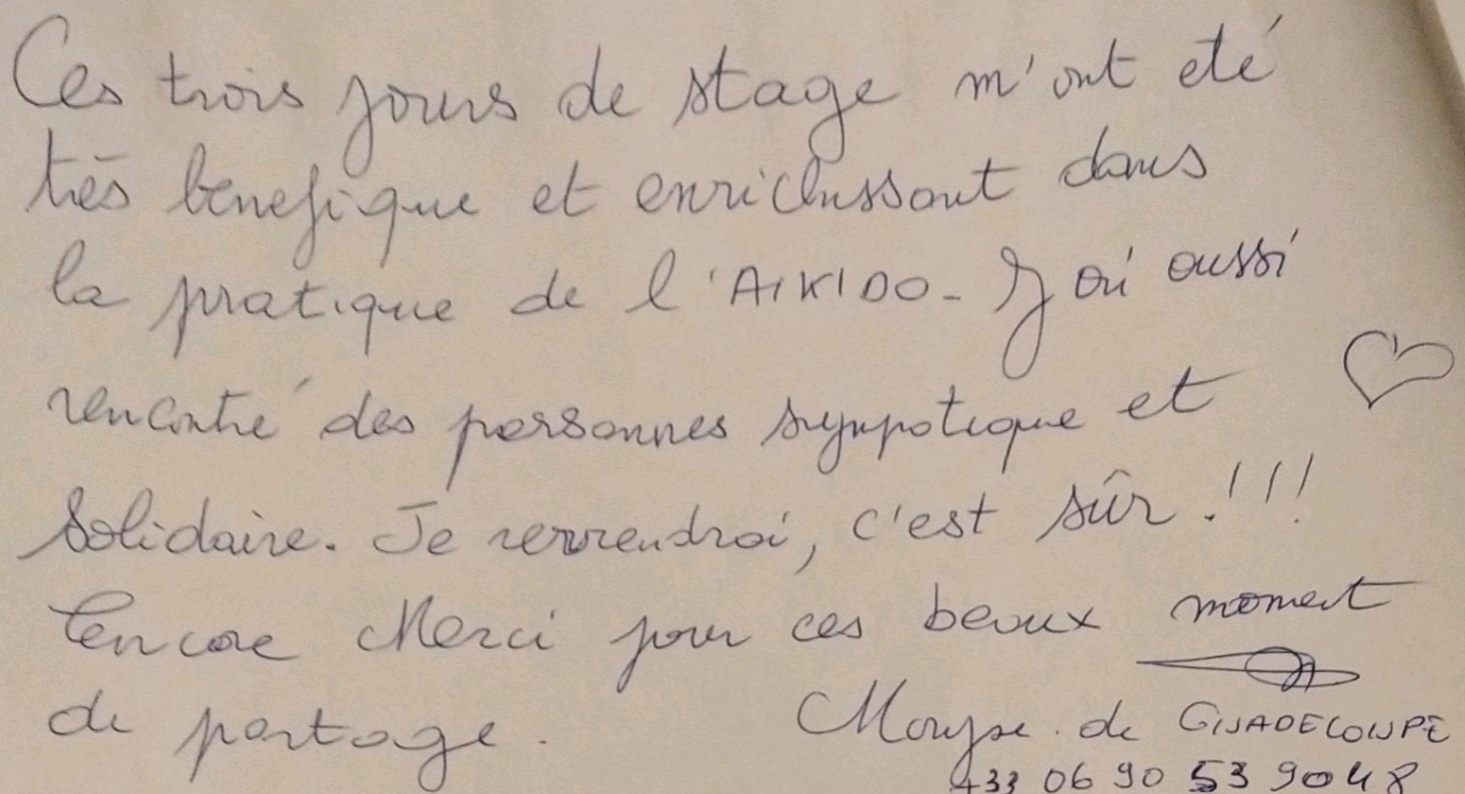 Ces trois jours de stage m'ont eté
très benefique et enrichissant dans
la pratique de l'AIKIDO - J'ai aussi
rencontré des personnes sympatique et
Solidaire. Je reviendrai, c'est sûr !!!
Encore Merci pour ces beaux moment
de partage.
Maryse de GUADELOUPE
+33 06 90 53 90 48